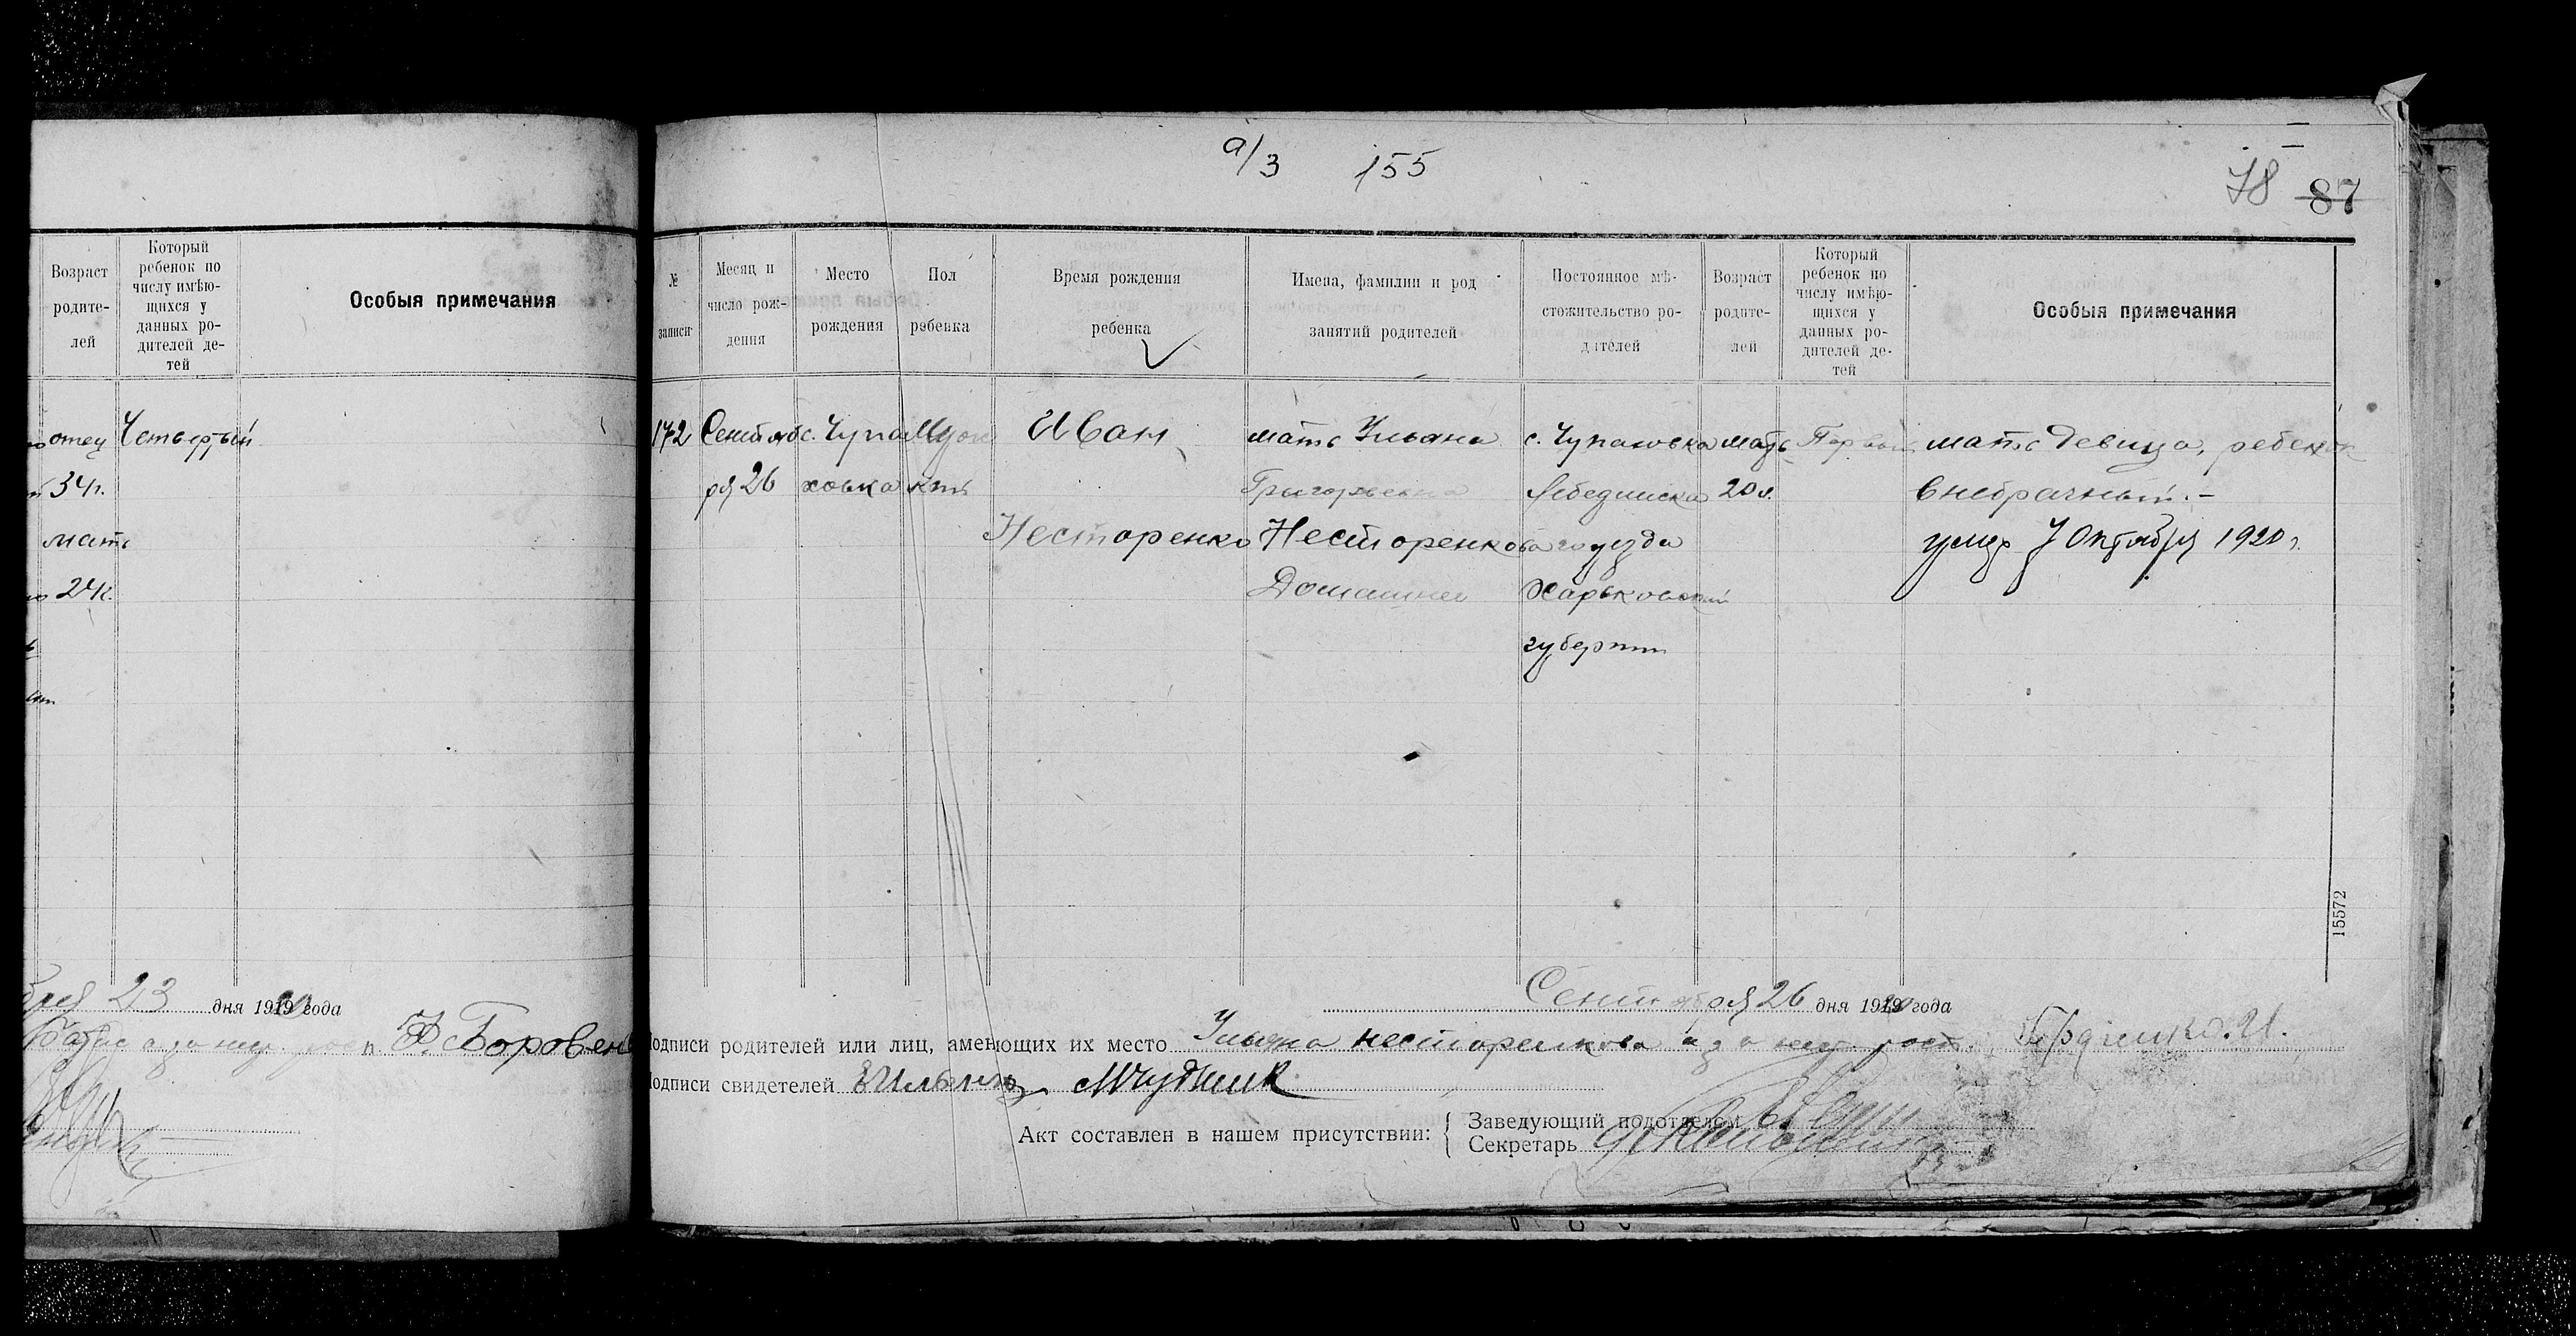 Возраст родите- лей
Который ребенок по числу имѣю- щихся у данных ро- дителей де- тей
Особыя примечания
отец
Четвертый
34 г.
мать
24 г.
23 дня 1920 года
Ф. Боровен
а/3 155
78 87
№ записи
Месяц и число рож- дения
Место рождения
Пол ребенка
Время рождения ребенка
Имена, фамилии и род занятий родителей
Постоянное мѣ- стожительство ро- дителей
Возраст родите- лей
Который ребенок по числу имѣю- щихся у данных ро- дителей де- тей
Особыя примечания
172
Сентяб
ря 26
с. Чупа
ховка
Мужс
кий
Иван
Несторенко
мать Ульяна
Григорьевна
Несторенкова
Домашнее
с. Чупаховка
Лебединска
го уезда
Харьковской
губернии
мать
20 л.
Первый
мать девица, ребенок
внебрачный. –
умер 7 Октября 1920 г.
15572
Сентября 26 дня 1920 года
Подписи родителей или лиц, амеющих их место Ульяна Несторенкова а за негр. рост.
Подписи свидетелей
Акт составлен в нашем присутствии:
Заведующий подотделом
Секретарь